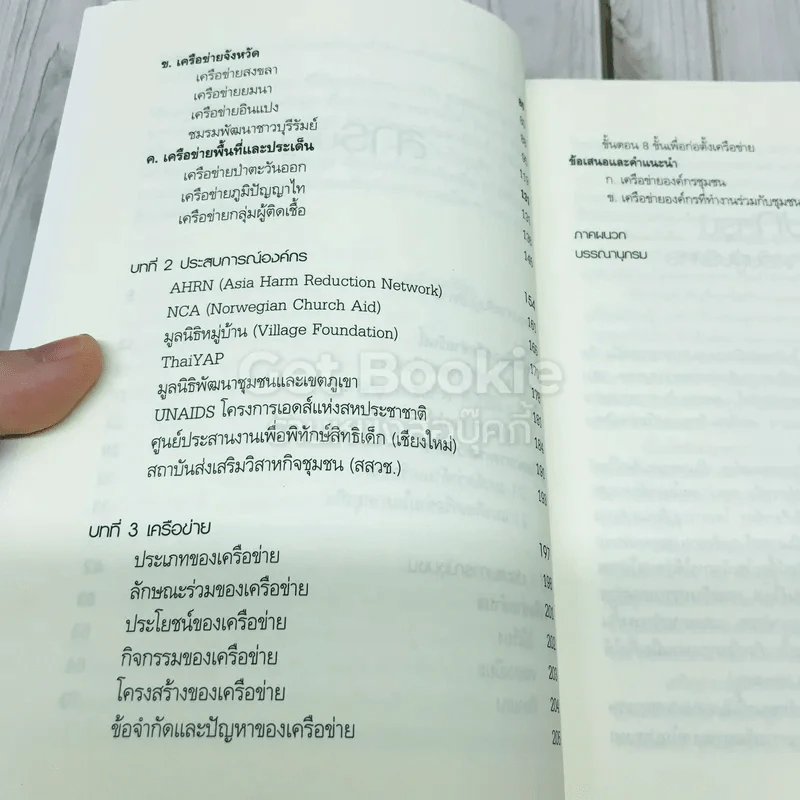 ข. เครือข่ายจังหวัด
เครือข่ายสงขลา
เครือข่ายยมนา
เครือข่ายอินแปง
ชมรมพัฒนาชาวบุรีรัมย์
ค. เครือข่ายพื้นที่และประเด็น
เครือข่ายป่าตะวันออก
เครือข่ายภูมิปัญญาไท
เครือข่ายกลุ่มผู้ติดเชื้อ
บทที่ 2 ประสบการณ์องค์กร
AHRN (Asia Harm Reduction Network) 154
NCA (Norwegian Church Aid)
มูลนิธิหมู่บ้าน (Village Foundation)
ThaiYAP
มูลนิธิพัฒนาชุมชนและเขตภูเขา 178
UNAIDS โครงการเอดส์แห่งสหประชาชาติ 181
ศูนย์ประสานงานเพื่อพิทักษ์สิทธิเด็ก (เชียงใหม่)
สถาบันส่งเสริมวิสาหกิจชุมชน (สสวช.)
บทที่ 3 เครือข่าย
ประเภทของเครือข่าย 197
ลักษณะร่วมของเครือข่าย 198
ประโยชน์ของเครือข่าย 201
กิจกรรมของเครือข่าย 202
โครงสร้างของเครือข่าย 203
ข้อจำกัดและปัญหาของเครือข่าย 204
205
ขั้นตอน 8 ขั้นเพื่อก่อตั้งเครือข่าย
ข้อเสนอและคำแนะนำ
ก. เครือข่ายองค์กรชุมชน
ข. เครือข่ายองค์กรที่ทำงานร่วมกับชุมชน
ภาคผนวก
บรรณานุกรม
Get Bookie